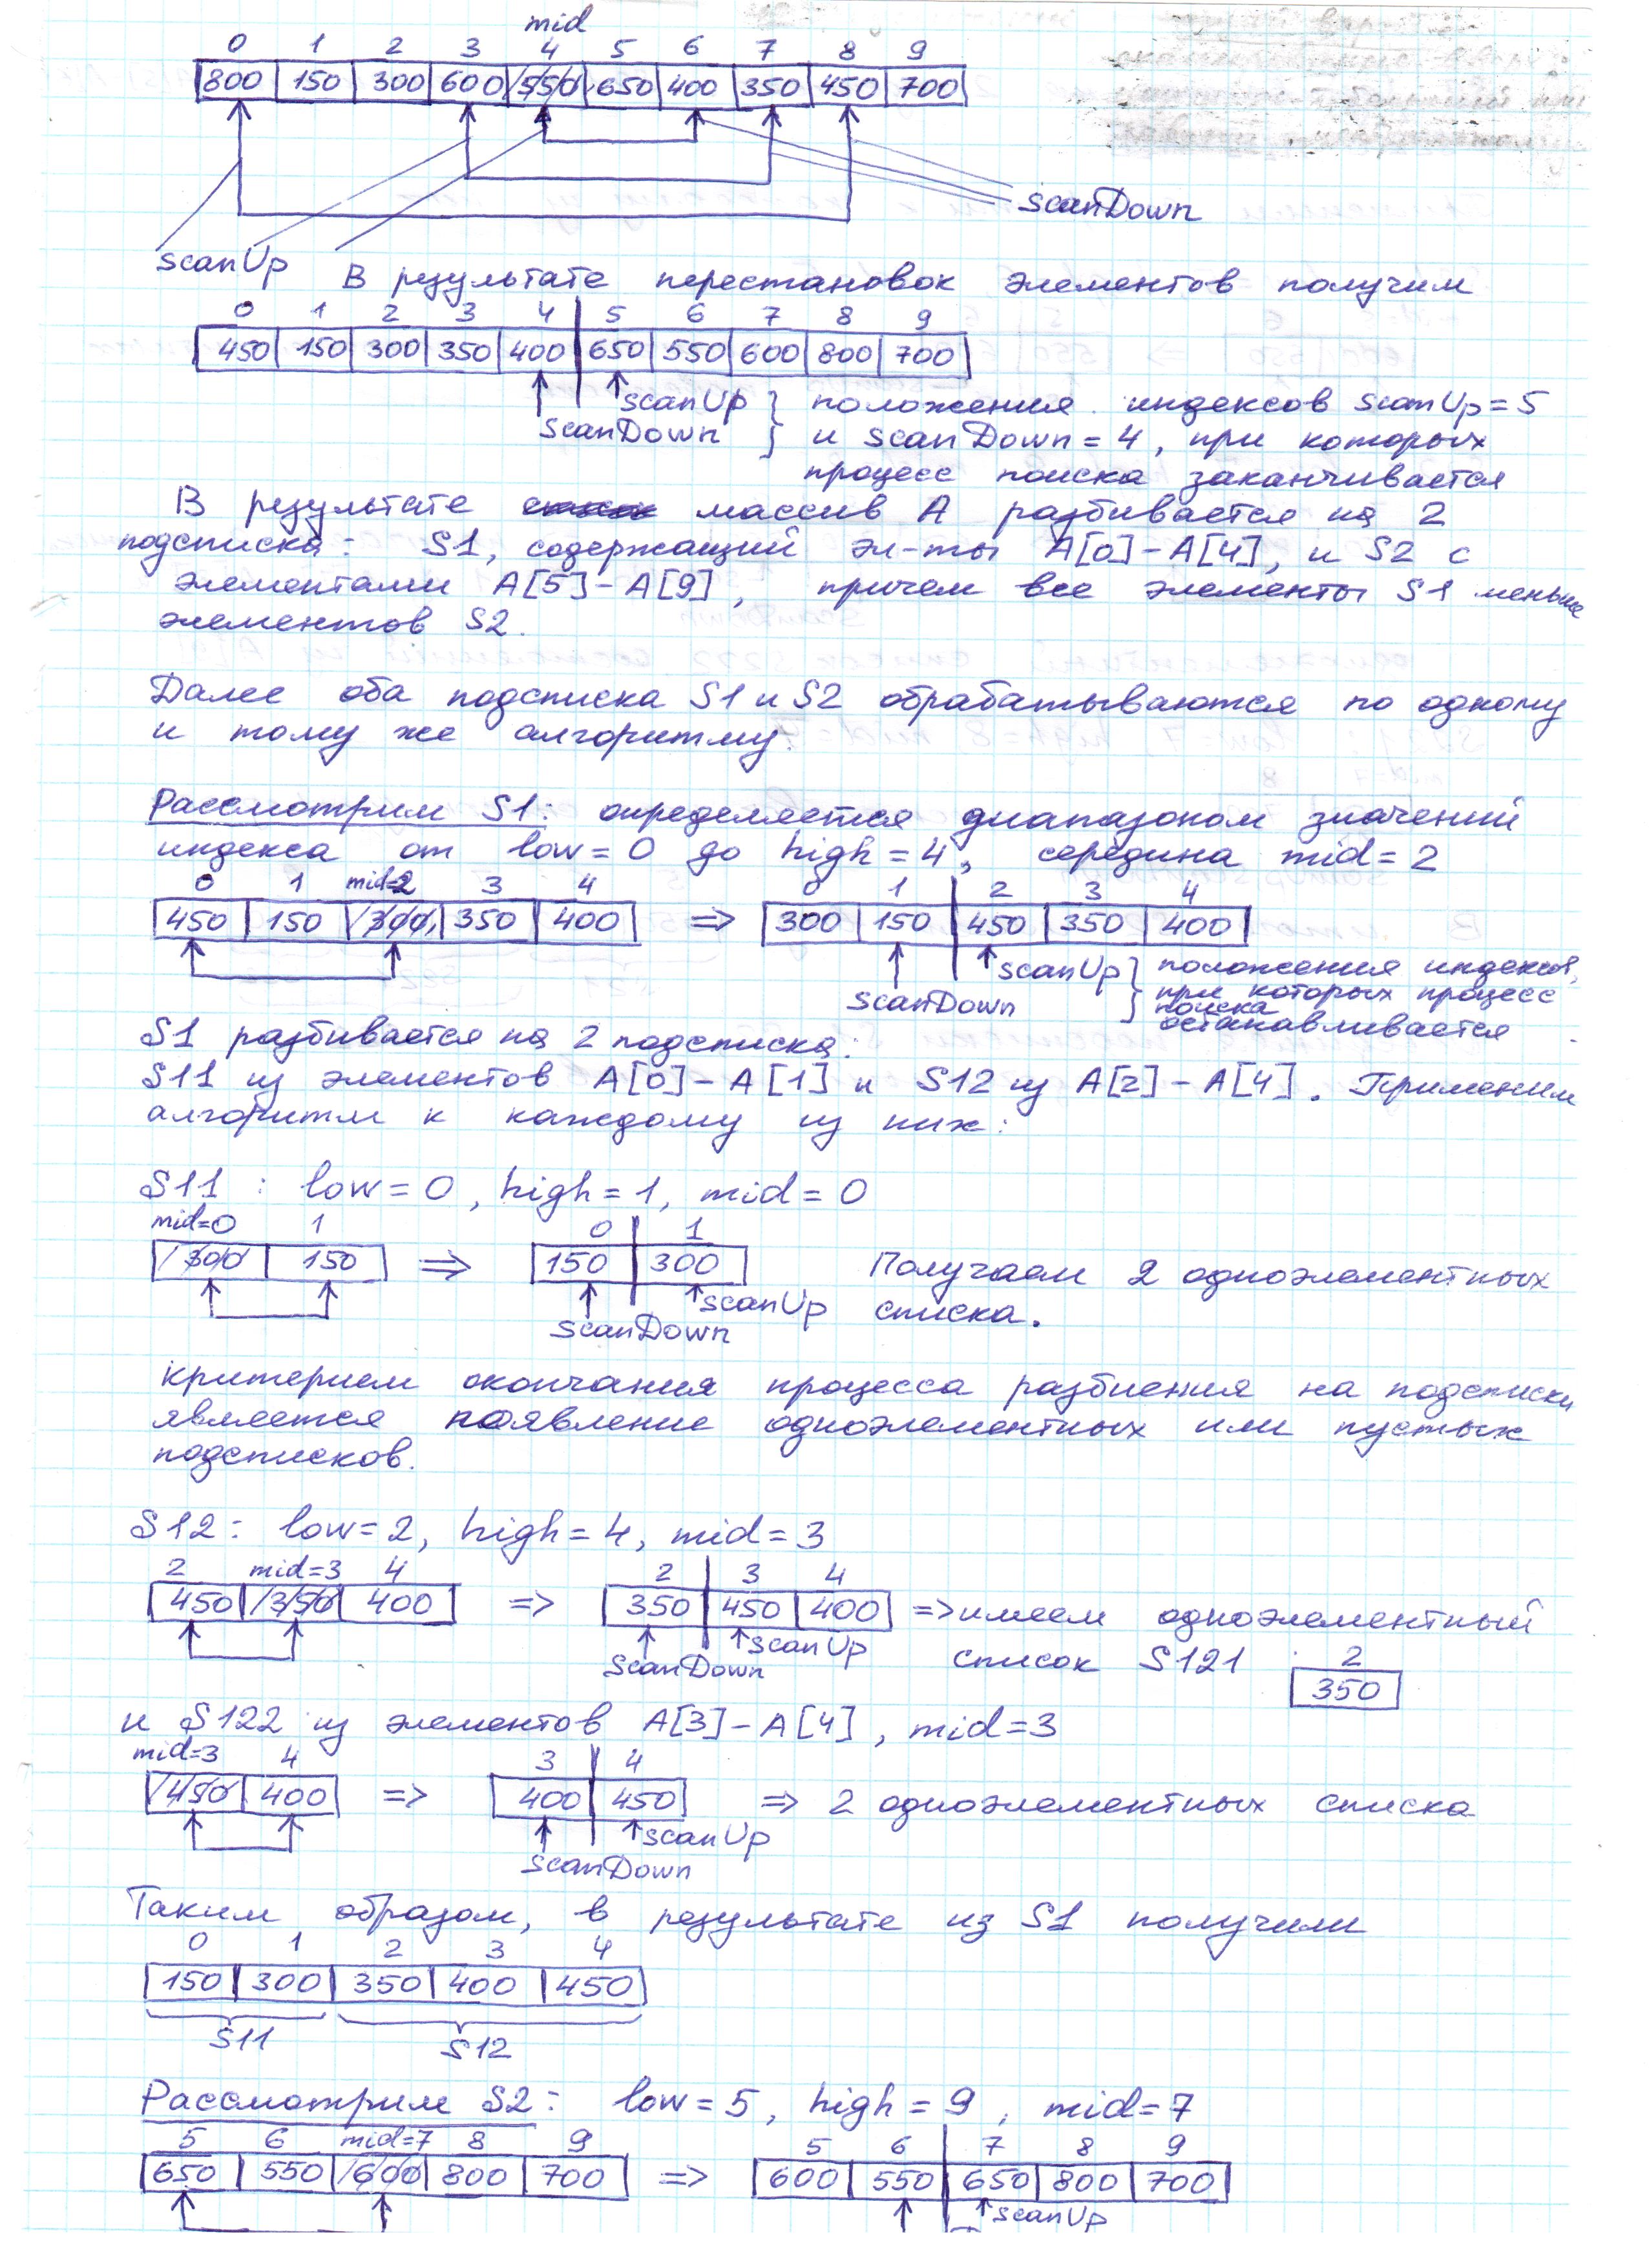 mid
0 1 2 3 4 5 6 7 8 9
800 150 300 600 550 650 400 350 450 700
scanDown
scanUp В результате перестановок элементов получим
0 1 2 3 4 5 6 7 8 9
450 150 300 350 400 650 550 600 800 700
scanUp } положения индексов scanUp=5
scanDown и scanDown=4, при которых
процесс поиска заканчивается
В результате массив A разбивается на 2
подсписка: S1, содержащий эл-ты A[0]-A[4], и S2 с
элементами A[5]-A[9], причем все элементы S1 меньше
элементов S2.
Далее оба подсписка S1 и S2 обрабатываются по одному
и тому же алгоритму.
Рассмотрим S1: определяется диапазоном значений
индекса от low=0 до high=4, середина mid=2
0 1 mid=2 3 4 0 1 2 3 4
450 150 300 350 400 => 300 150 450 350 400
scanUp } положения индексов,
scanDown при которых процесс
поиска
останавливается
S1 разбивается на 2 подсписка:
S11 из элементов A[0]-A[1] и S12 из A[2]-A[4]. Применим
алгоритм к каждому из них:
S11: low=0, high=1, mid=0
mid=0 1 0 1
300 150 => 150 300 Получаем 2 одноэлементных
scanUp списка.
scanDown
Критерием окончания процесса разбиения на подсписки
является появление одноэлементных или пустых
подсписков.
S12: low=2, high=4, mid=3
2 mid=3 4 2 3 4
450 350 400 => 350 450 400 => имеем одноэлементный
scanDown scanUp список S121 2
350
и S122 из элементов A[3]-A[4], mid=3
mid=3 4 3 4
450 400 => 400 450 => 2 одноэлементных списка
scanUp
scanDown
Таким образом, в результате из S1 получили
0 1 2 3 4
150 300 350 400 450
S11 S12
Рассмотрим S2: low=5, high=9, mid=7
5 6 mid=7 8 9 5 6 7 8 9
650 550 600 800 700 => 600 550 650 800 700
scanUp